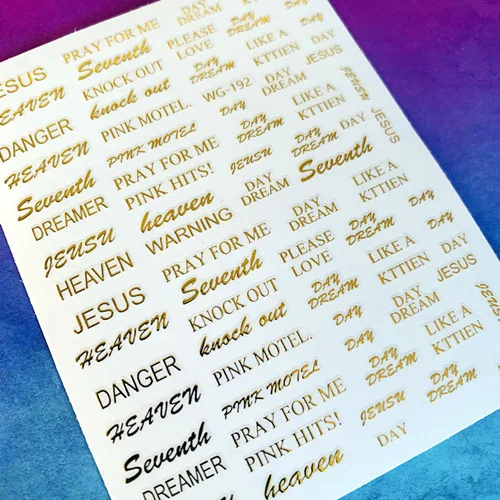 JESUS
HEAVEN
DANGER
HEAVEN
Seventh
DREAMER
JEUSU
HEAVEN
JESUS
HEAVEN
DANGER
HEAVEN
Seventh
DREAMER
PRAY FOR ME
Seventh
KNOCK OUT
knock out
PINK MOTEL.
PINK MOTEL
PRAY FOR ME
PINK HITS!
heaven
WARNING
PRAY FOR ME
Seventh
KNOCK OUT
knock out
PINK MOTEL.
PINK MOTEL
PRAY FOR ME
PINK HITS!
heaven
DAY
DREAM
PLEASE
LOVE
DAY
DREAM
WG-192
DAY
DREAM
JEUSU
DAY
DREAM
DAY
DREAM
PLEASE
LOVE
DAY
DREAM
DAY
DAY
DREAM
JEUSU
DAY
DAY
DREAM
LIKE A
KTTIEN
DAY
DREAM
LIKE A
KTTIEN
DAY
Seventh
LIKE A
KTTIEN
DAY
DREAM
LIKE A
KTTIEN
DAY
DREAM
DAY
DAY
DREAM
JEUSU
JESUS
DAY
DAY
JESUS
LIKE A
KTTIEN
DAY